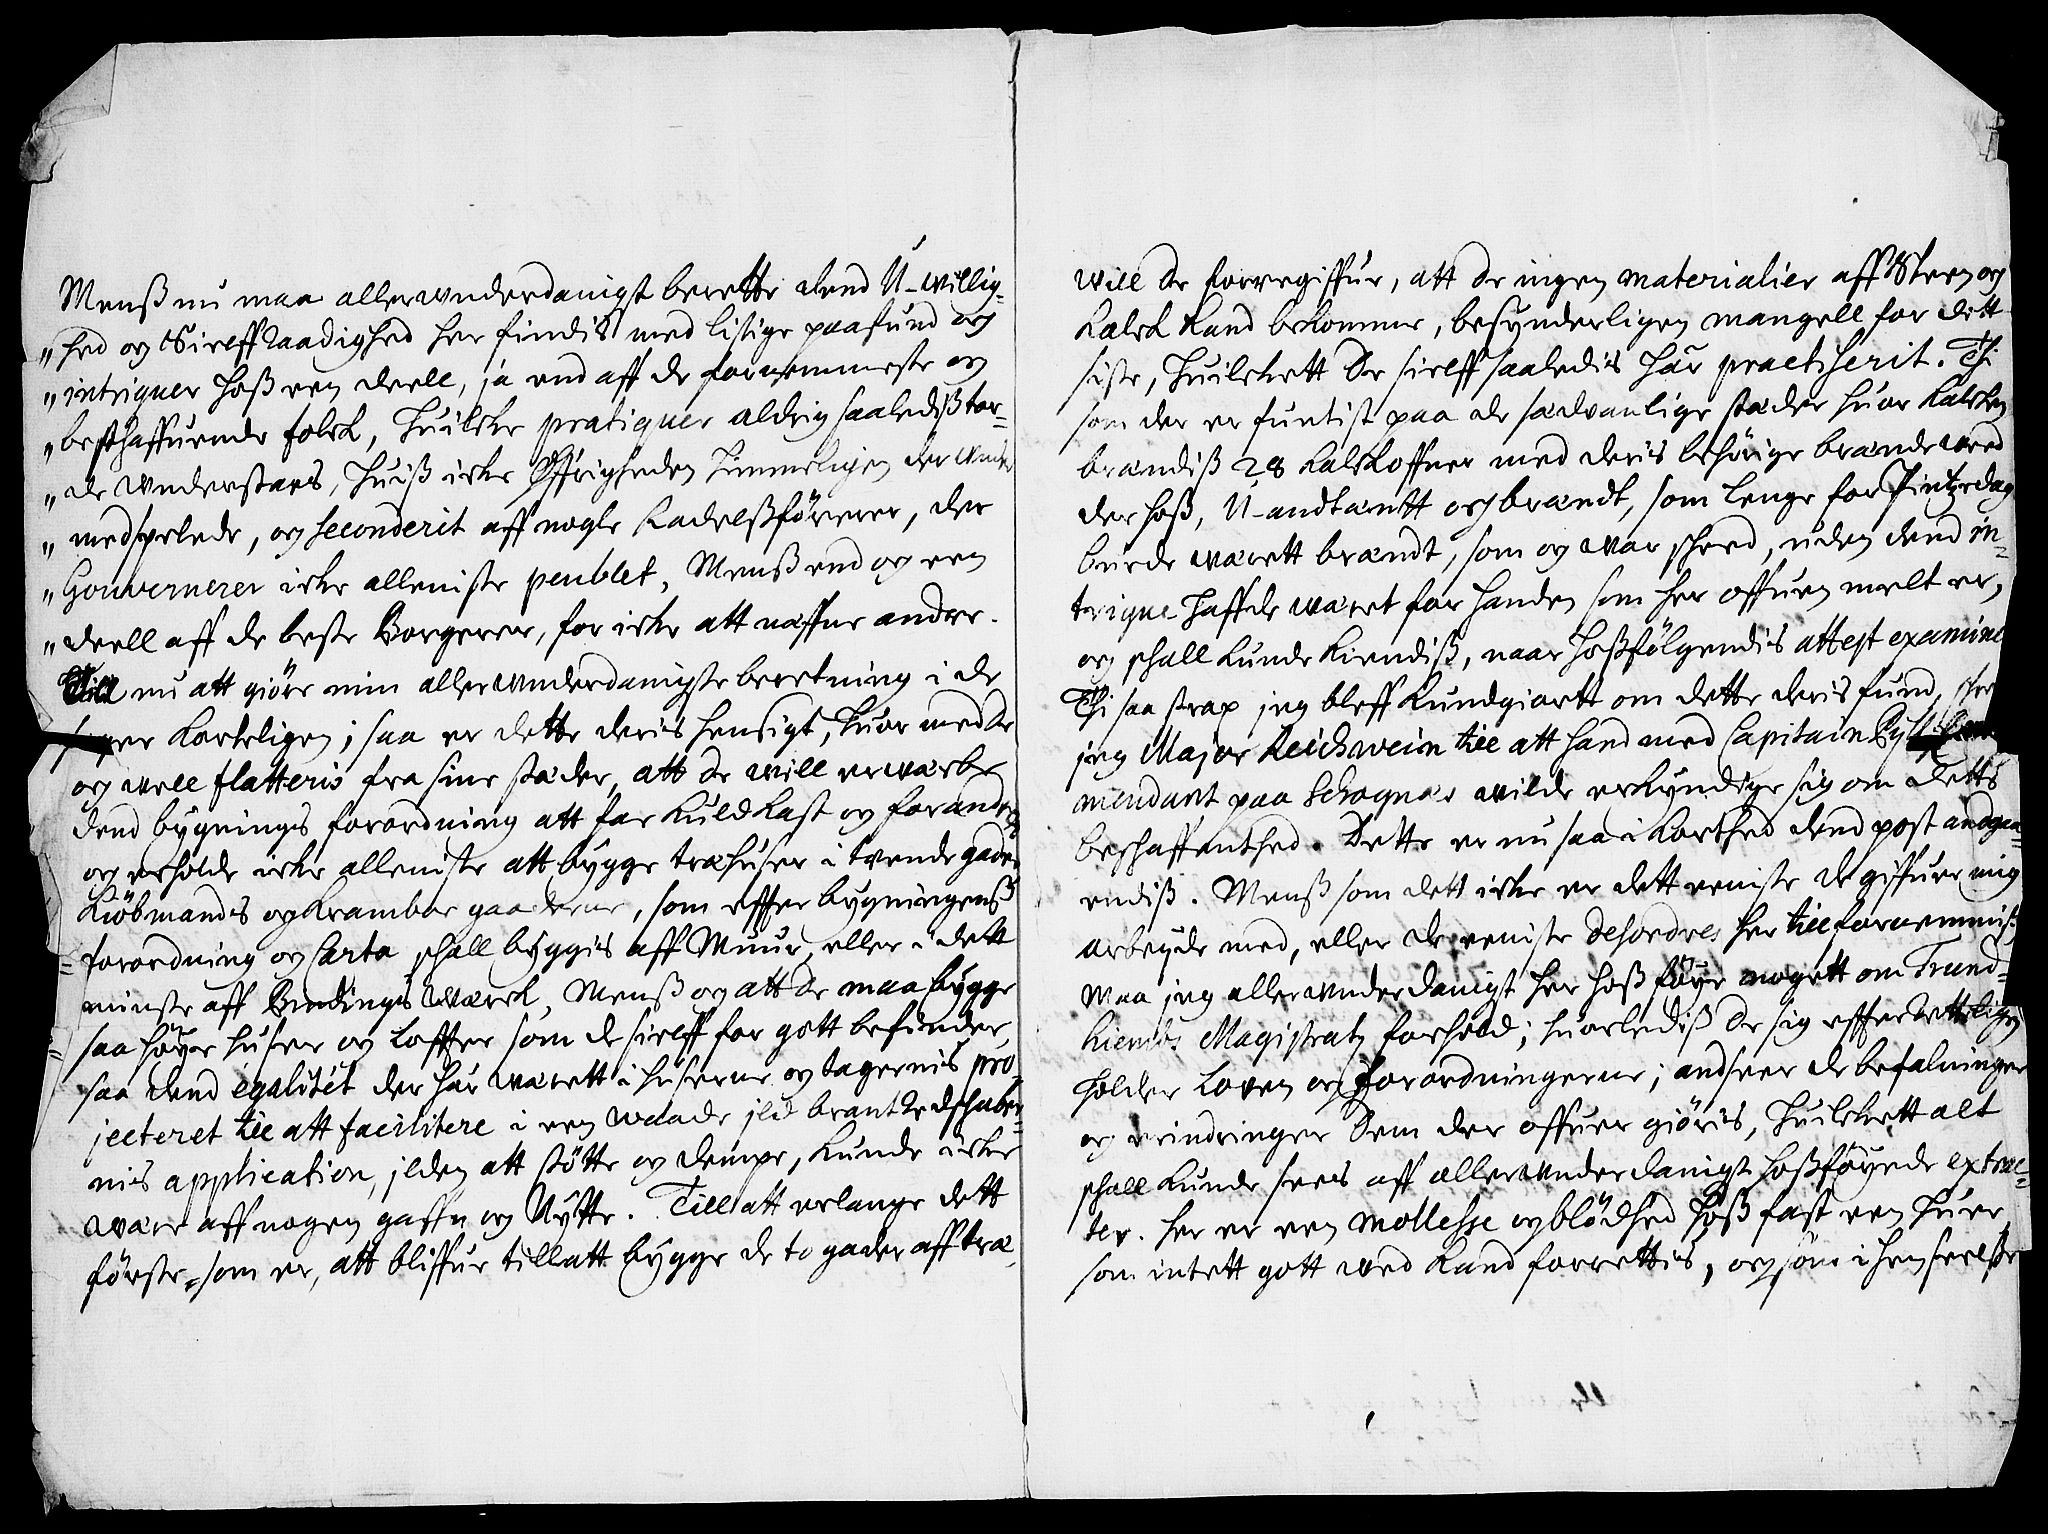 Menß nu maa allerunderdanigst berette dend U-willig-
"hed og Sielffraadighed her findis med listige paafund og
"intriguer hoß een deell, ja end aff de fornemmeste og
"besthaffuende folck, huilcke pratiquer aldrig saalediß tor-
"de understaaes, huiß icke Øffrigheden himmeligen der under
"medspelede, og seconderit aff nogle Radelßförerer, der
"Gouvernerer icke alleniste peublet, Menß end og een
"deell aff de beste Borgerer, for icke att næffne andre.
Till nu att giöre min allerunderdanigste beretning i de
sager korteligen; saa er dette deris hensigt, huor med de
og well flatteris fra sine stæder, att de will erwærbe
dend bygnings forordning att faa kuldkast og forandret
og erholde icke alleniste att bygge træhuser i tvende gader
Kiöbmands og Kramboe gaaderne, som effter bygningenß
forordning og Carta schall byggis aff Muur, eller i dett
minste aff Bindings Wærck, Menß og att de maa bygge
saa höye huser og Loffter som de sielff for gott befinder,
saa dend egalitét der här wærett i huserne og tagernis pro-
jecteret till att facilitere i een waade jld brant Redschaber-
nis application, jlden att stötte og dempe, kunde icke
wære aff nogen gaffn og Nytte. Till att erlange dett
förste, som er, att bliffue tilladt bygge de to gader aff træ,
will de forregiffue, att de ingen materialier aff Steen og
Kalck kand bekomme, besynderligen mangell for dett
siste, huilckett de sielff saaledis här practiserit. Thi
som der er funtist paa de sædvanlige stæder huor Kalcken
brændiß 28 Kalckoffner med deris behörige brændeveed
der hoß, U-andtændt og brændt, som lenge for Pintzedag
burde wærett brændt, som og war scheed, uden dend in-
trigue haffde wæret for handen som her offuen melt er,
og schall kunde kiendiß, naar hoßfölgendis attest examine
Thi saa strax jeg bleff kundgiortt om dette deris fund,
jeg Major Reichwein till att hand med Capitain
mendant paa Schognæs wilde erkyndige sig om Detts
beschaffenthed. Dette er nu saa i korthed dend post andgaa-
endiß. Menß som dett icke er dett eeniste de giffuer mig
arbeyde med, eller de eeniste desordres her till fornemmis,
Maa jeg allerunderdanigst her hoß föye nogett om Trund-
hiembs Magistratz forhold; huorlediß de sig effterrettelig
holder Loven og forordningerne; andseer de befalninger
og erindringer Dem der offuer giöris, huilckett alt
schall kunde sees aff allerunderdanigst hoßföyede extrac-
ter. Her er een mollesse og blödhed hoß fast een huer,
som intett gott ved kand forrettis, og som i henseelße